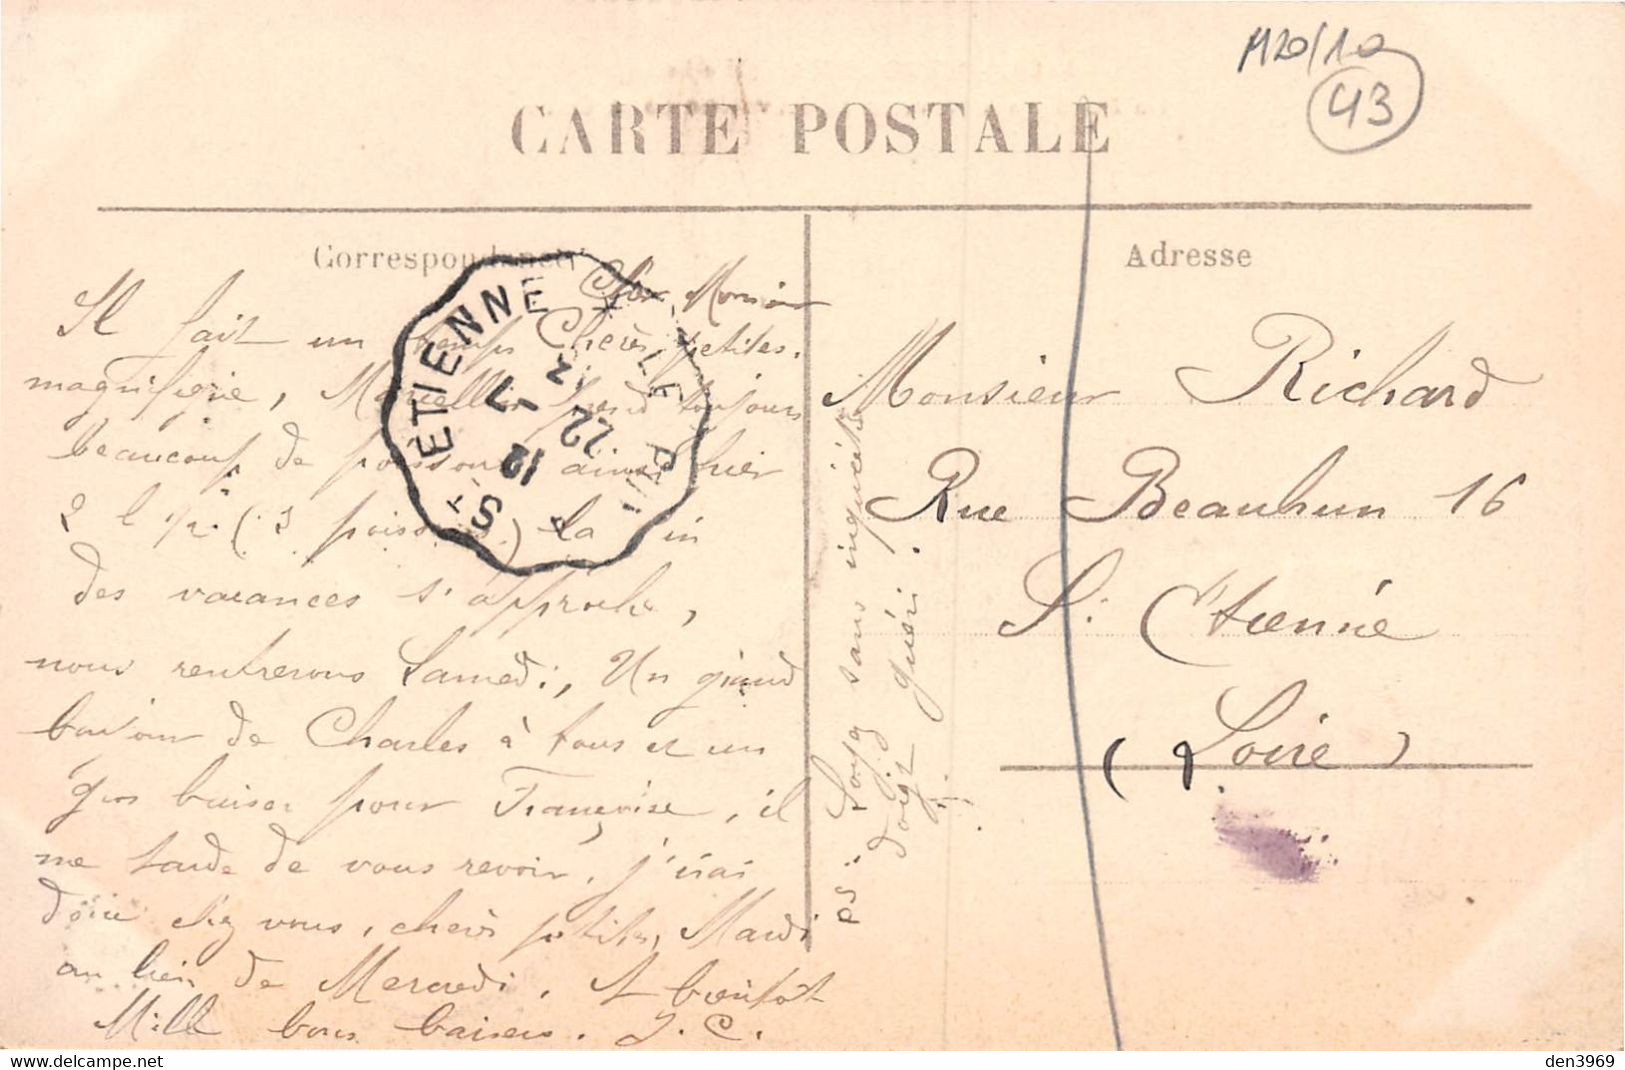 M20/10
43
CARTE POSTALE
Correspondance
Adresse
Il fait un temps Chères petites.
magnifique, Marcellin prend toujours
beaucoup de poissons ainsi hier
2 l 1/2 (3 poissons) La fin
des vacances s'approche,
nous rentrerons Samedi, Un grand
bonjour de Charles à tous et un
gros baiser pour Françoise, il
me tarde de vous revoir, j'irai
donc chez vous, chères petites, Mardi
au lieu de Mercredi. A bientôt
Mille bons baisers. J. C.
PS: sans inquiétude
doigt guéri.
ST ÉTIENNE
12
22
7
Monsieur Richard
Rue Beaubrun 16
St Etienne
(Loire)
den3969